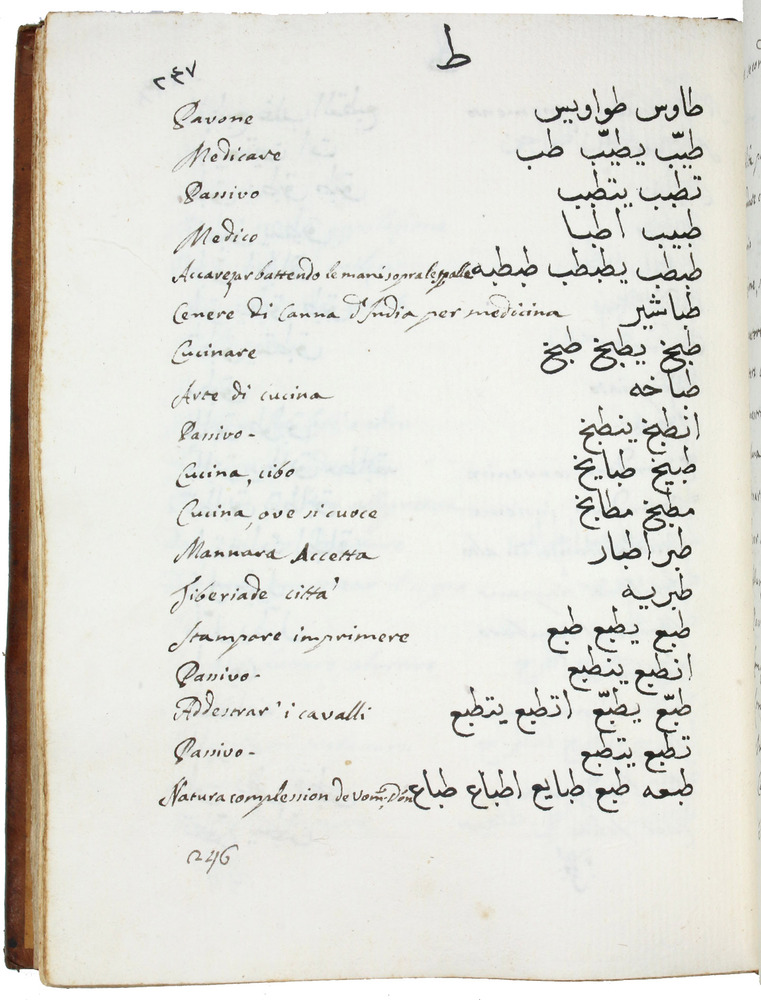 ط
٢٤٧
Pavone طاوس طواويس
Medicare طيّب يطيّب طب
Passivo تطبب يتطبب
Medico طبيب اطبا
Accarezzar battendo le mani sopra le spalle طبطب يطبطب طبطبه
Cenere di Canna d'India per medicina طباشير
Cucinare طبخ يطبخ طبخ
Arte di cucina طباخه
Passivo- انطبخ ينطبخ
Cucina, cibo طبيخ طبايخ
Cucina, ove si cuoce مطبخ مطابخ
Mannara Accetta طبر اطبار
Tiberiade città طبريه
Stampare imprimere طبع يطبع طبع
Passivo- انطبع ينطبع
Addestrar' i cavalli طبّع يطبّع اتطبع يتطبع
Passivo- تطبع يتطبع
Natura complession de طبعه طبع طبايع اطباع طباع
246